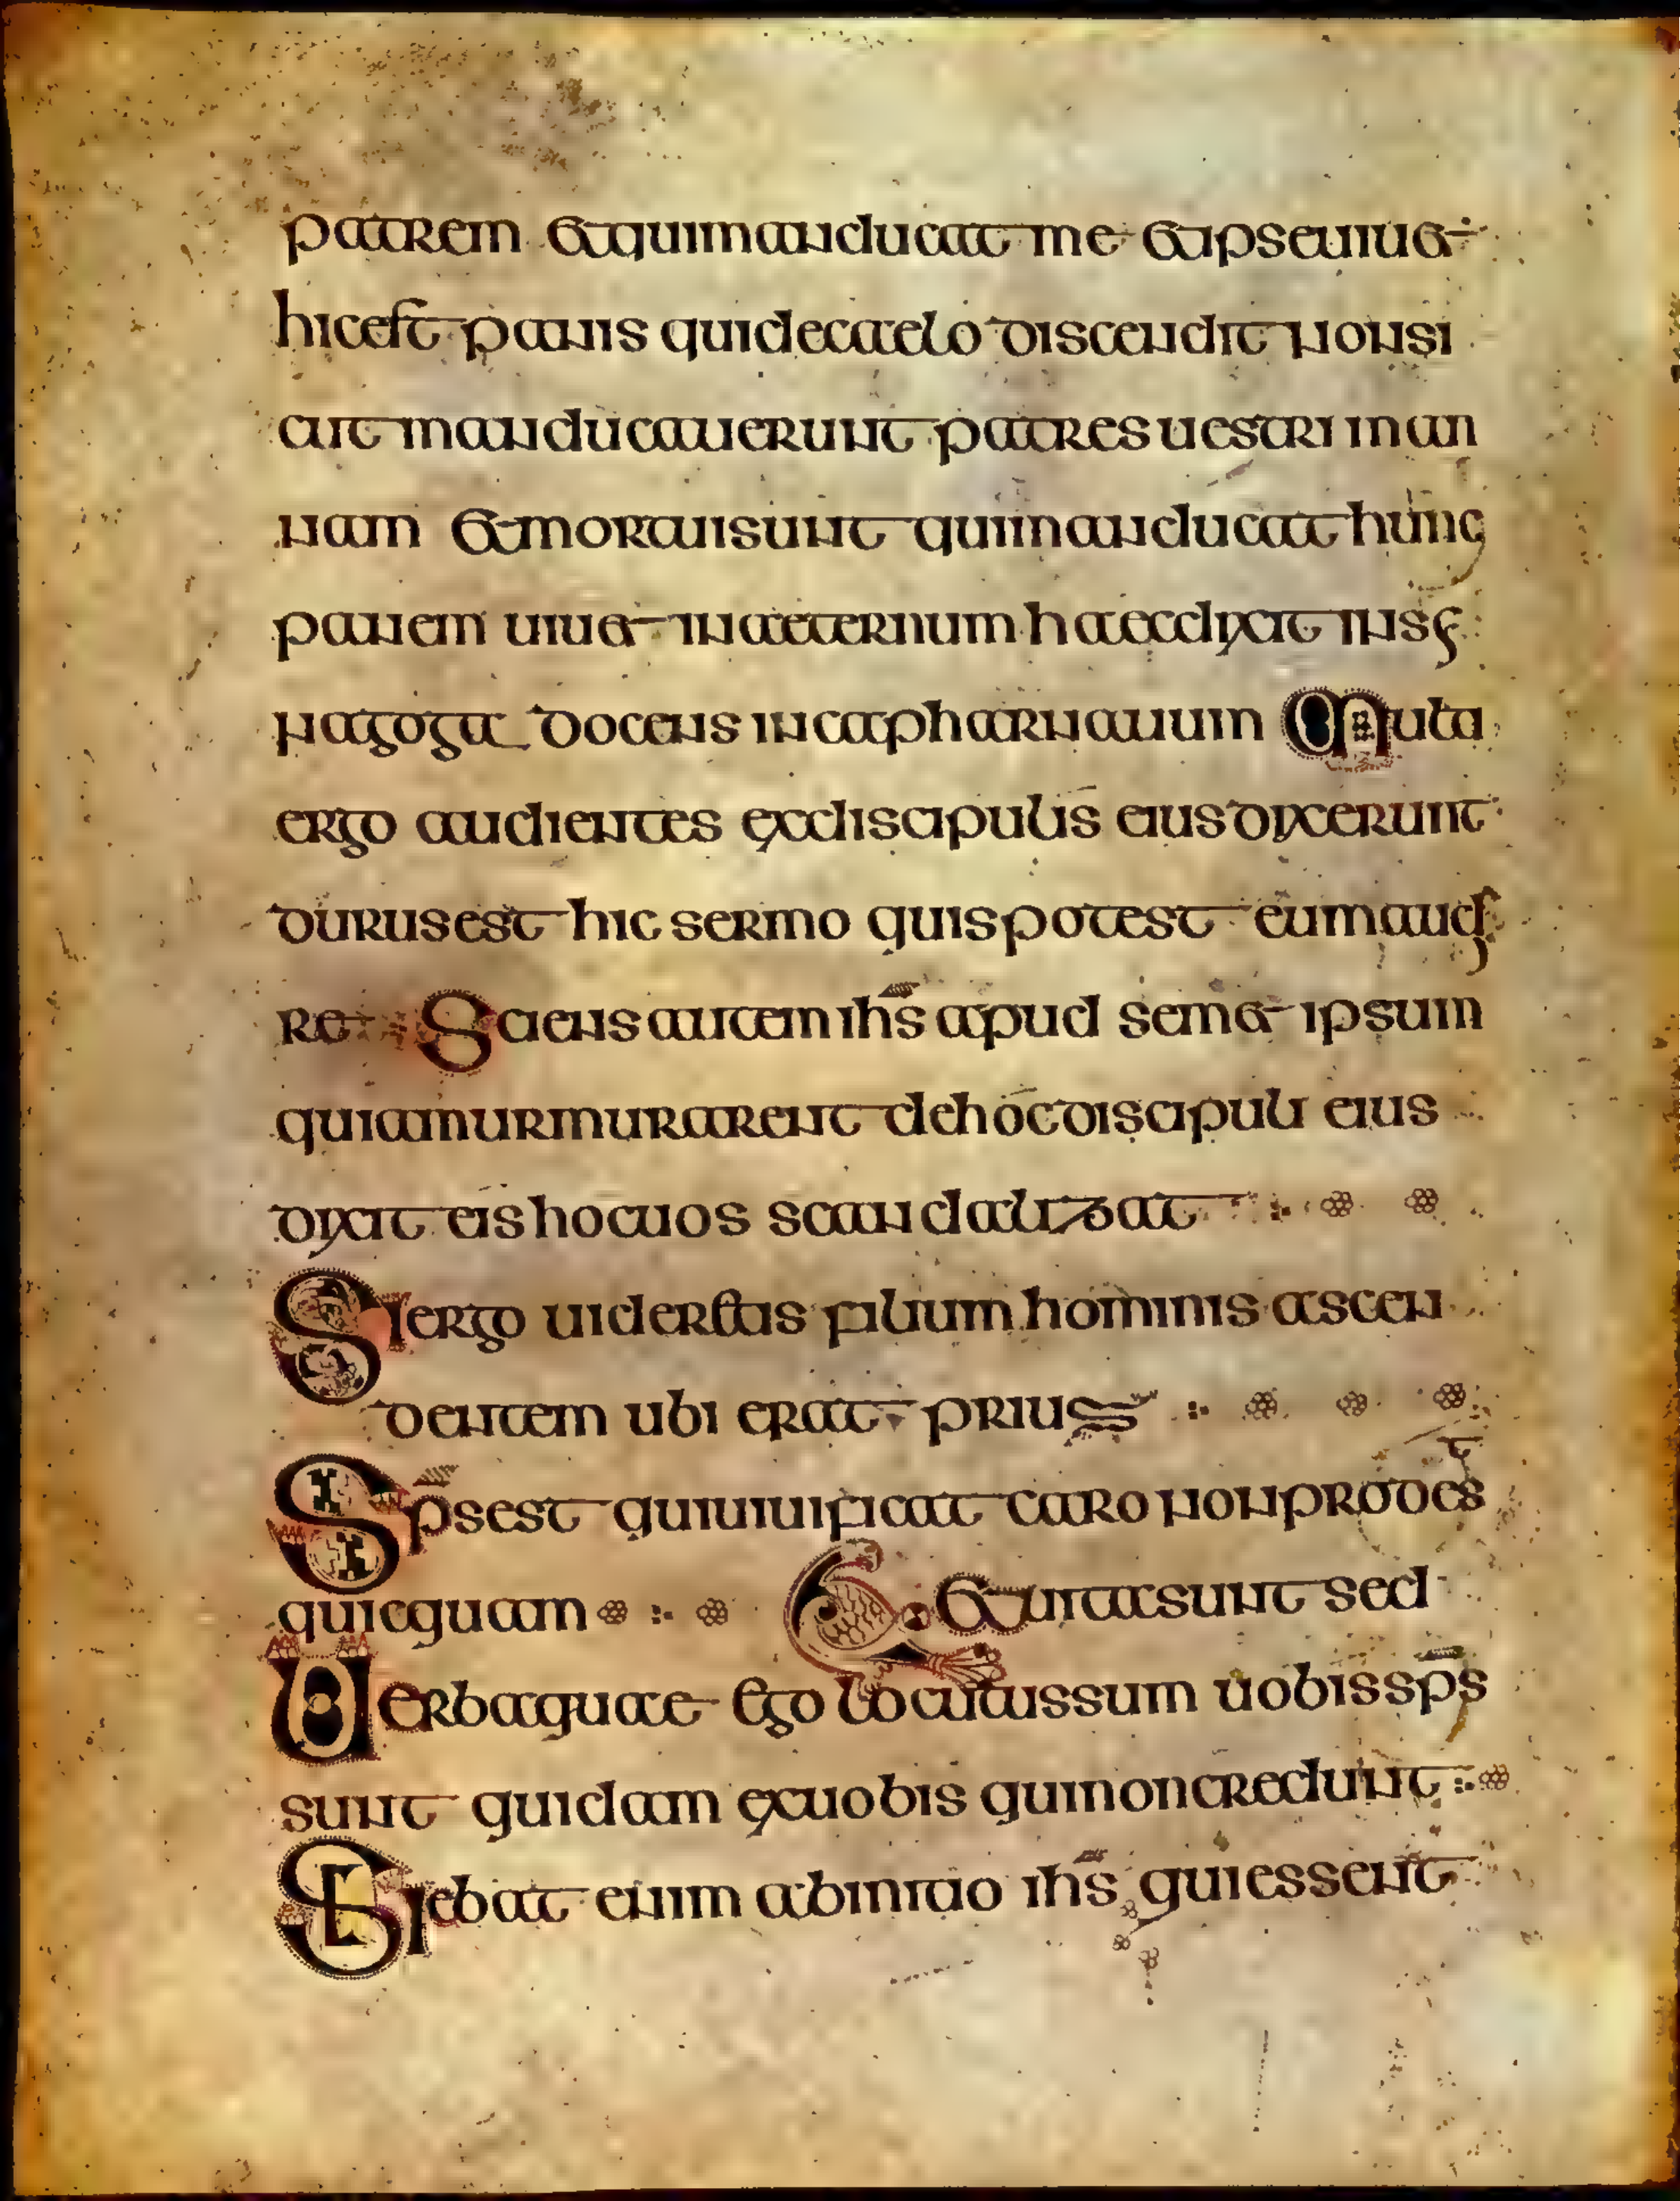 patrem et qui manducat me et ipse uiuet
hic est panis qui de caelo discendit non si
cut manducauerunt patres uestri man
nam et mortui sunt qui manducat hunc
panem uiuet in aeternum haec dixit in si
nagoga docens in capharnauum Multi
ergo audientes ex discipulis eius dixerunt
durus est hic sermo quis potest eum audi
re Sciens autem ihs apud semet ipsum
quia murmurarent de hoc discipuli eius
dixit eis hoc uos scandalizat
Si ergo uideritis filium hominis ascen
dentem ubi erat prius
Sps est qui uiuificat caro non prodest
quicquam et uita sunt sed
Uerba quae ego locutus sum uobis sps
sunt quidam ex uobis qui non credunt
Sciebat enim ab initio ihs qui essent